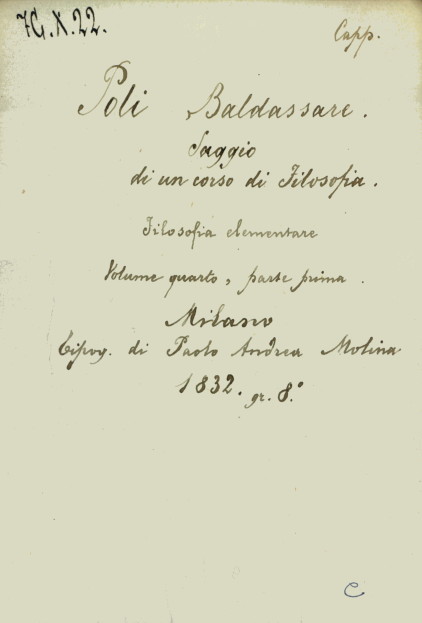 7G.X.22.
Capp.
Poli Baldassare.
Saggio
di un corso di Filosofia.
Filosofia elementare
Volume quarto, parte prima.
Milano
Tipog. di Paolo Andrea Molina
1832. gr. 8.°
C